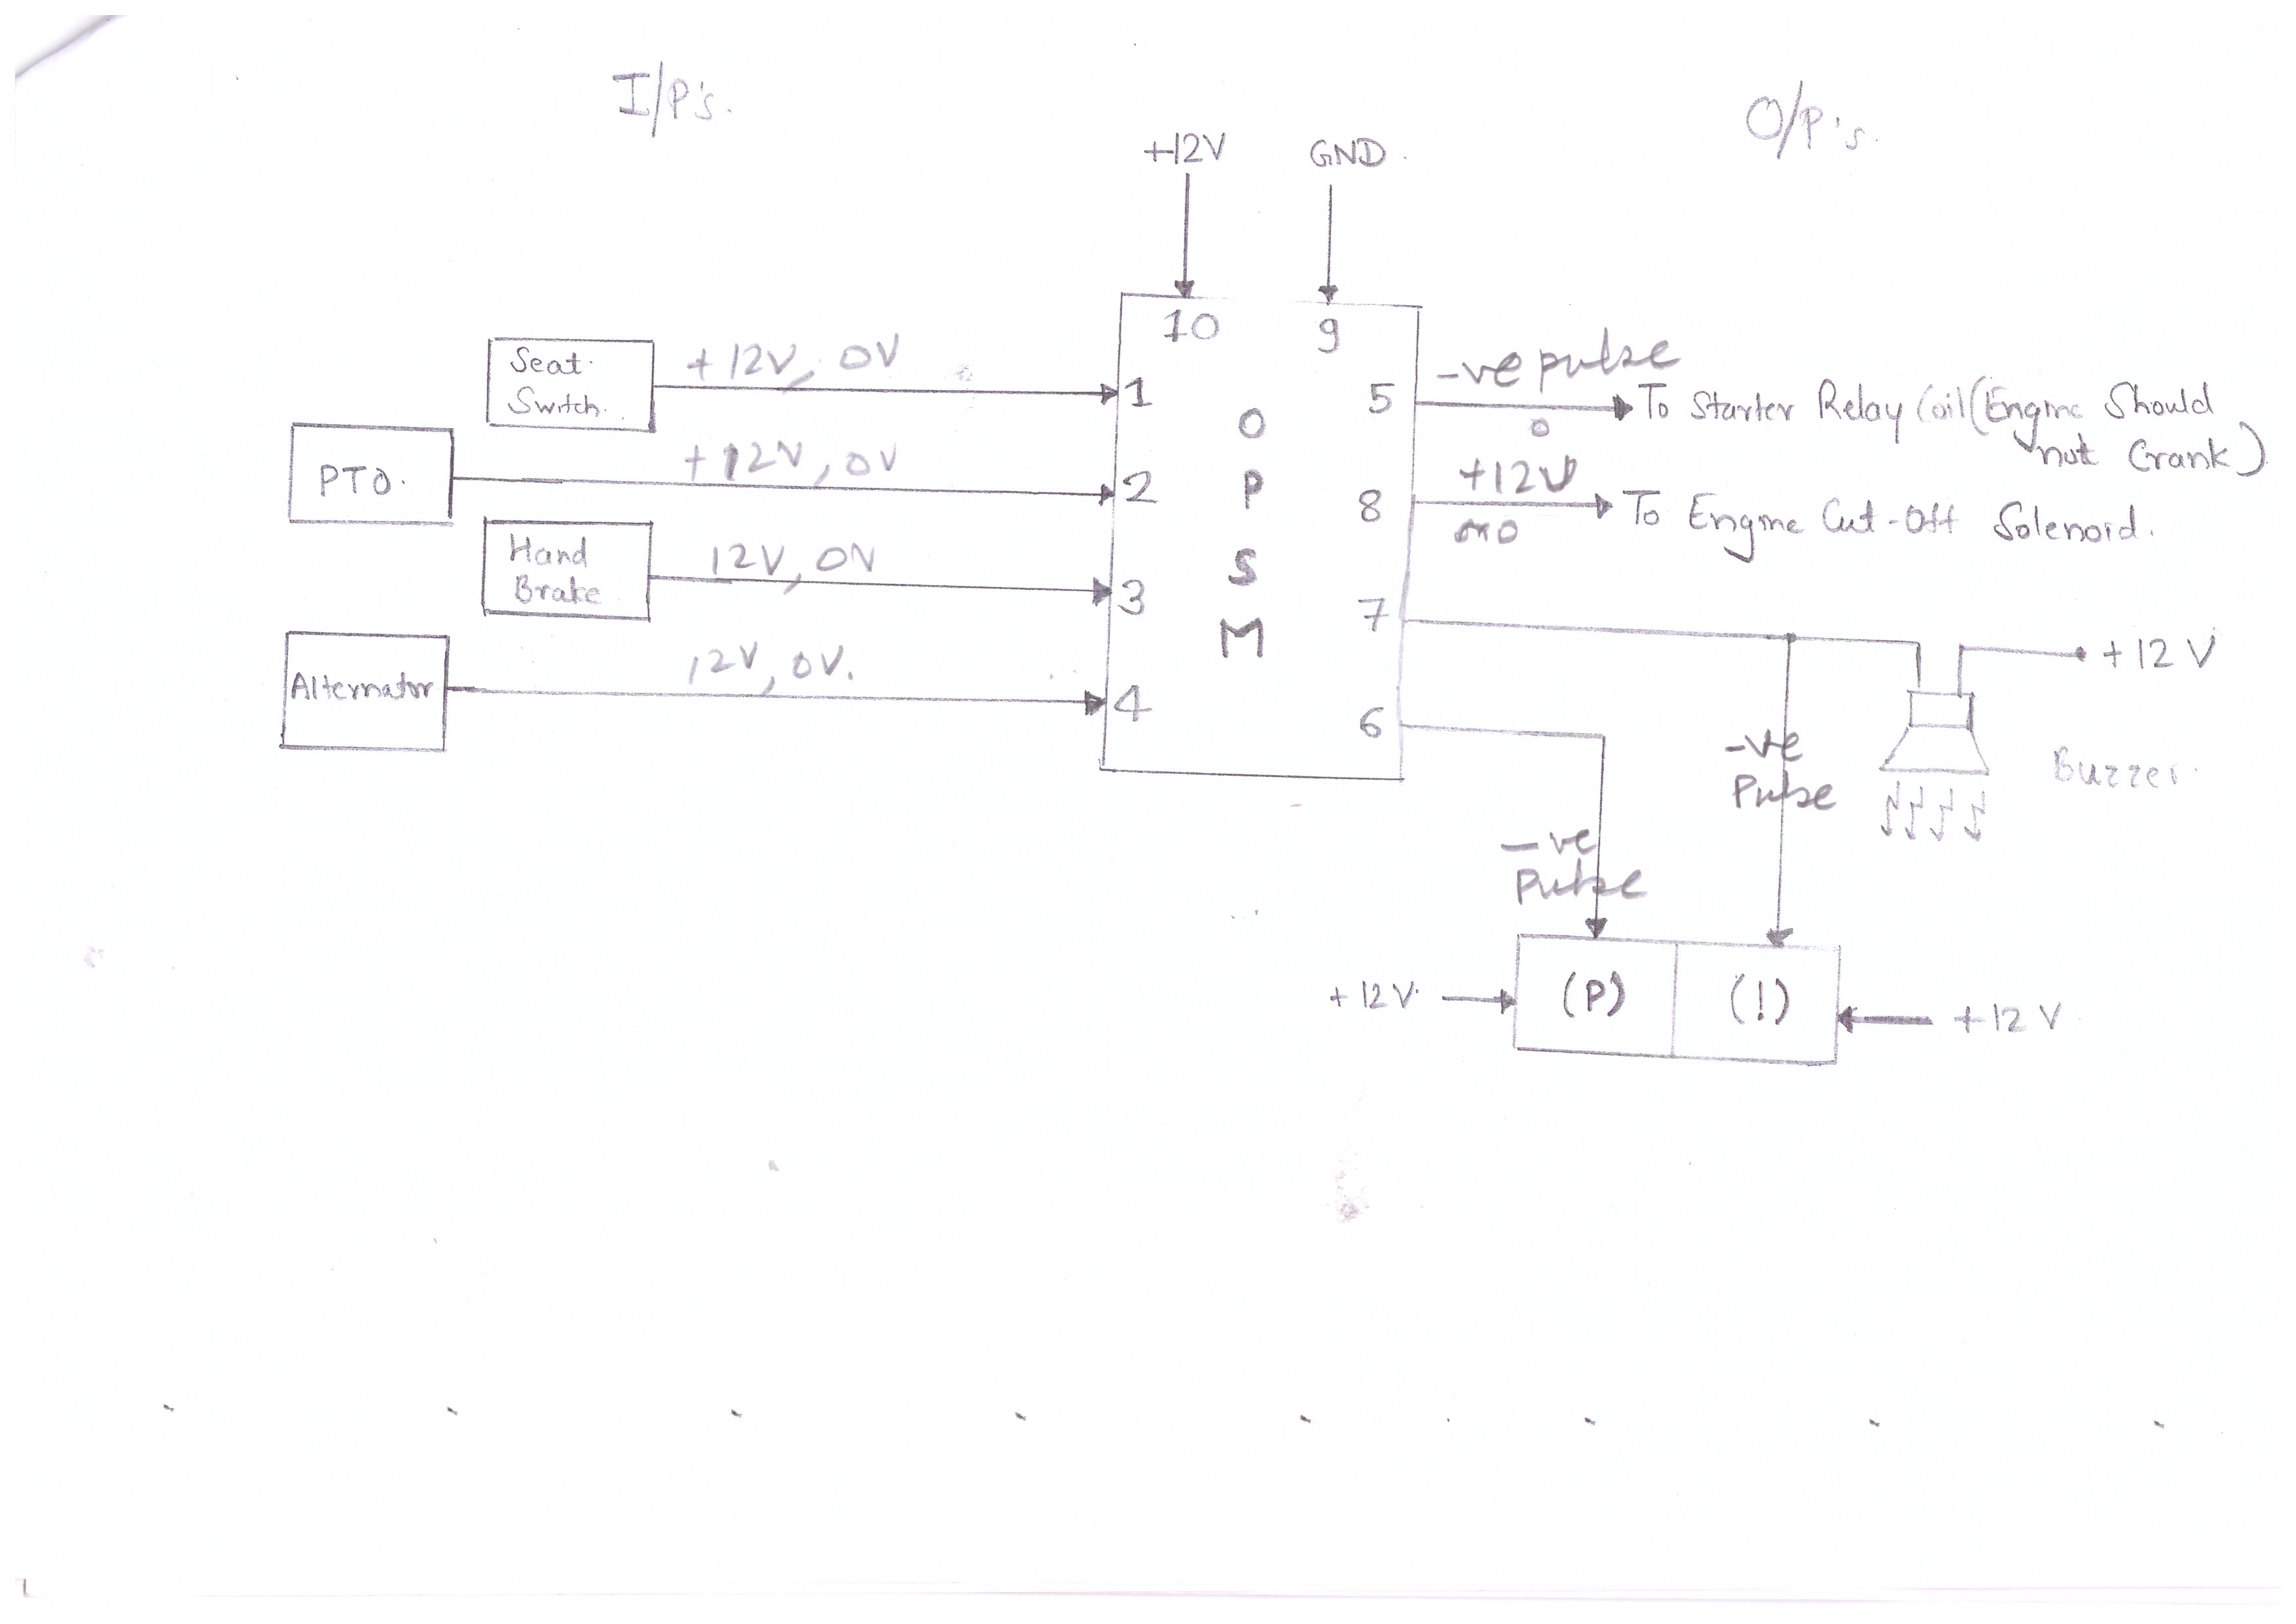 I/P's.
O/P's.
+12V
GND.
10
9
Seat
Switch.
+12V, 0V
1
PTO.
+12V, 0V
2
Hand
Brake
12V, 0V
3
Alternator
12V, 0V.
4
O
P
S
M
5
-ve pulse
0
To Starter Relay Coil (Engine Should
not Crank)
8
+12V
To Engine Cut-Off Solenoid.
7
+12 V
Buzzer.
6
-ve
Pulse
-ve
Pulse
+12V.
(P)
(!)
+12 V